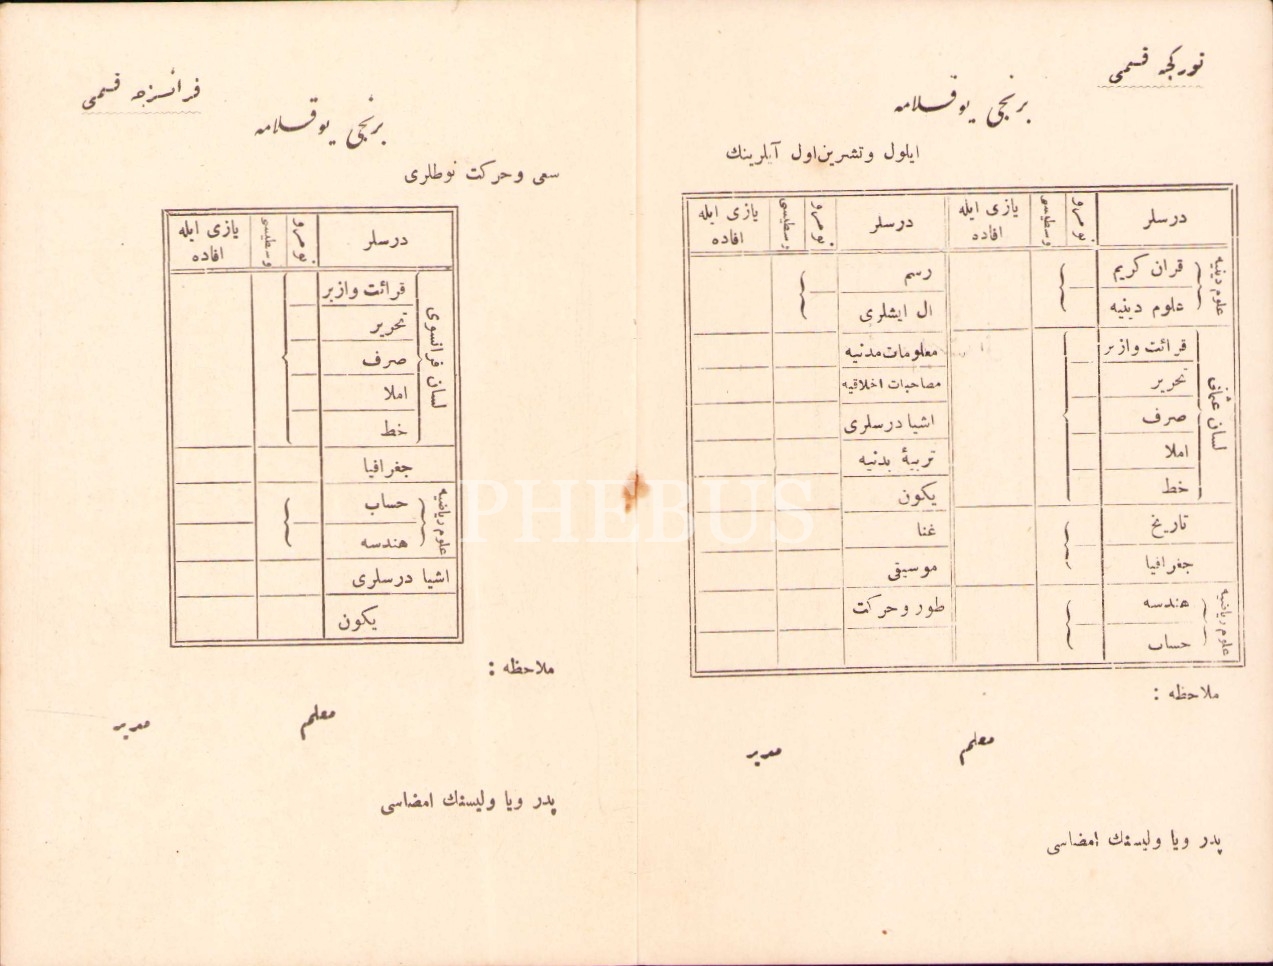 تورکجه قسمی
برنجی یوقلامه
ایلول وتشرین اول آیلرینك
درسلر نومرو وسطیسی یازی ایله افاده درسلر نومرو وسطیسی یازی ایله افاده
علوم دینیه
قران کریم رسم
علوم دینیه ال ایشلری
لسان عثمانی
قرائت وازبر معلومات مدنیه
تحریر مصاحبات اخلاقیه
صرف اشیا درسلری
املا تربیهٔ بدنیه
خط یکون
تاریخ غنا
جغرافیا موسیقی
علوم ریاضیه
هندسه طور وحرکت
حساب
ملاحظه :
معلم مدیر
پدر ویا ولیسنك امضاسی
فرانسزجه قسمی
برنجی یوقلامه
سعی وحرکت نوطلری
درسلر نومرو وسطیسی یازی ایله افاده
لسان فرانسوی
قرائت وازبر
تحریر
صرف
املا
خط
جغرافیا
علوم ریاضیه
حساب
هندسه
اشیا درسلری
یکون
ملاحظه :
معلم مدیر
پدر ویا ولیسنك امضاسی
PHEBUS